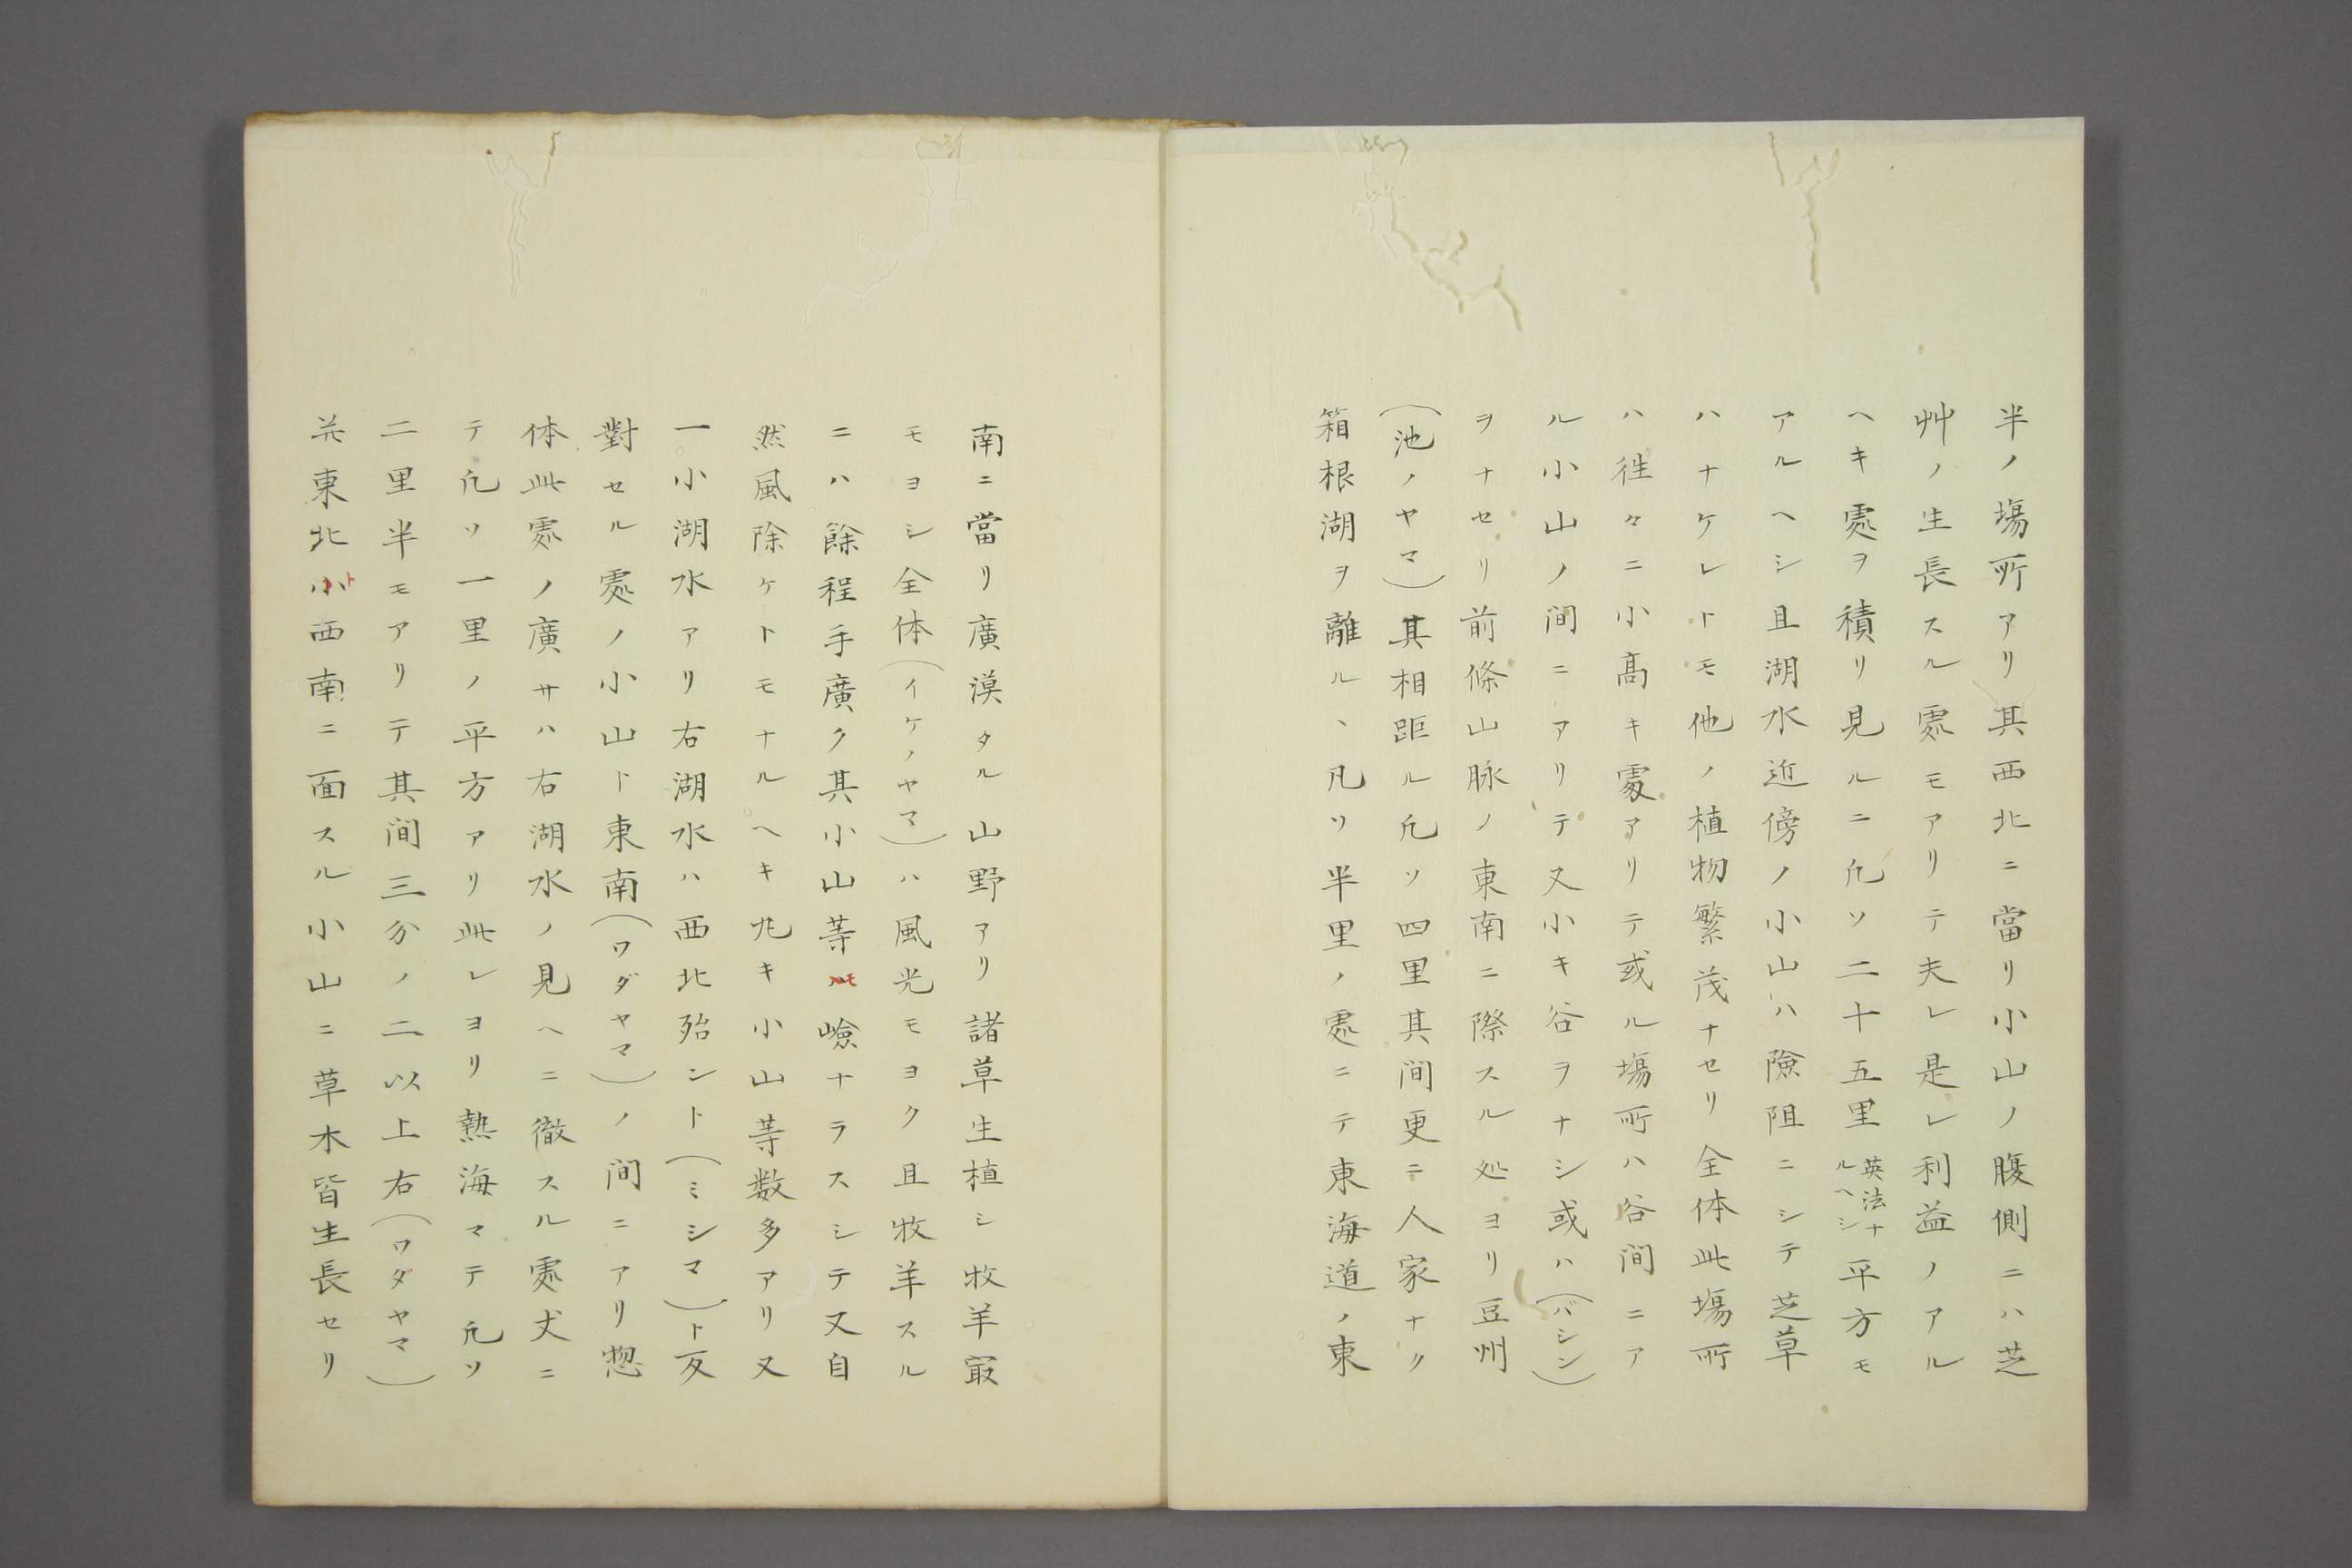 半ノ塲所アリ其西北ニ當リ小山ノ腹側ニハ芝
艸ノ生長スル䖏モアリテ夫レ是レ利益ノアル
ヘキ䖏ヲ積リ見ルニ凢ソ二十五里英法ナルヘシ平方モ
アルヘシ且湖水近傍ノ小山ハ險阻ニシテ芝草
ハナケレトモ他ノ植物繁茂ナセリ全体此塲所
ハ徃々ニ小髙キ䖏アリテ或ル塲所ハ谷間ニア
ル小山ノ間ニアリテ又小キ谷ヲナシ或ハ(バシン)
ヲナセリ前條山脉ノ東南ニ際スル処ヨリ豆州
(池ノヤマ)其相距ル凢ソ四里其间更ニ人家ナク
箱根湖ヲ離ル、凡ソ半里ノ䖏ニテ東海道ノ東
南ニ當リ廣漠タル山野アリ諸草生植シ牧羊㝡
モヨシ全体(イケノヤマ)ハ風光モヨク且牧羊スル
ニハ餘程手廣ク其小山等モ嶮ナラスシテ又自
然風除ケトモナルヘキ兀キ小山等数多アリ又
一小湖水アリ右湖水ハ西北殆ント(ミシマ)ト反
對セル䖏ノ小山ト東南(ワダヤマ)ノ间ニアリ惣
体此䖏ノ廣サハ右湖水ノ見ヘニ徹スル䖏丈ニ
テ凢ソ一里ノ平方アリ此レヨリ熱海マテ凢ソ
二里半モアリテ其间三分ノ二以上右(ワダヤマ)
并東北ト西南ニ面スル小山ニ草木皆生長セリ